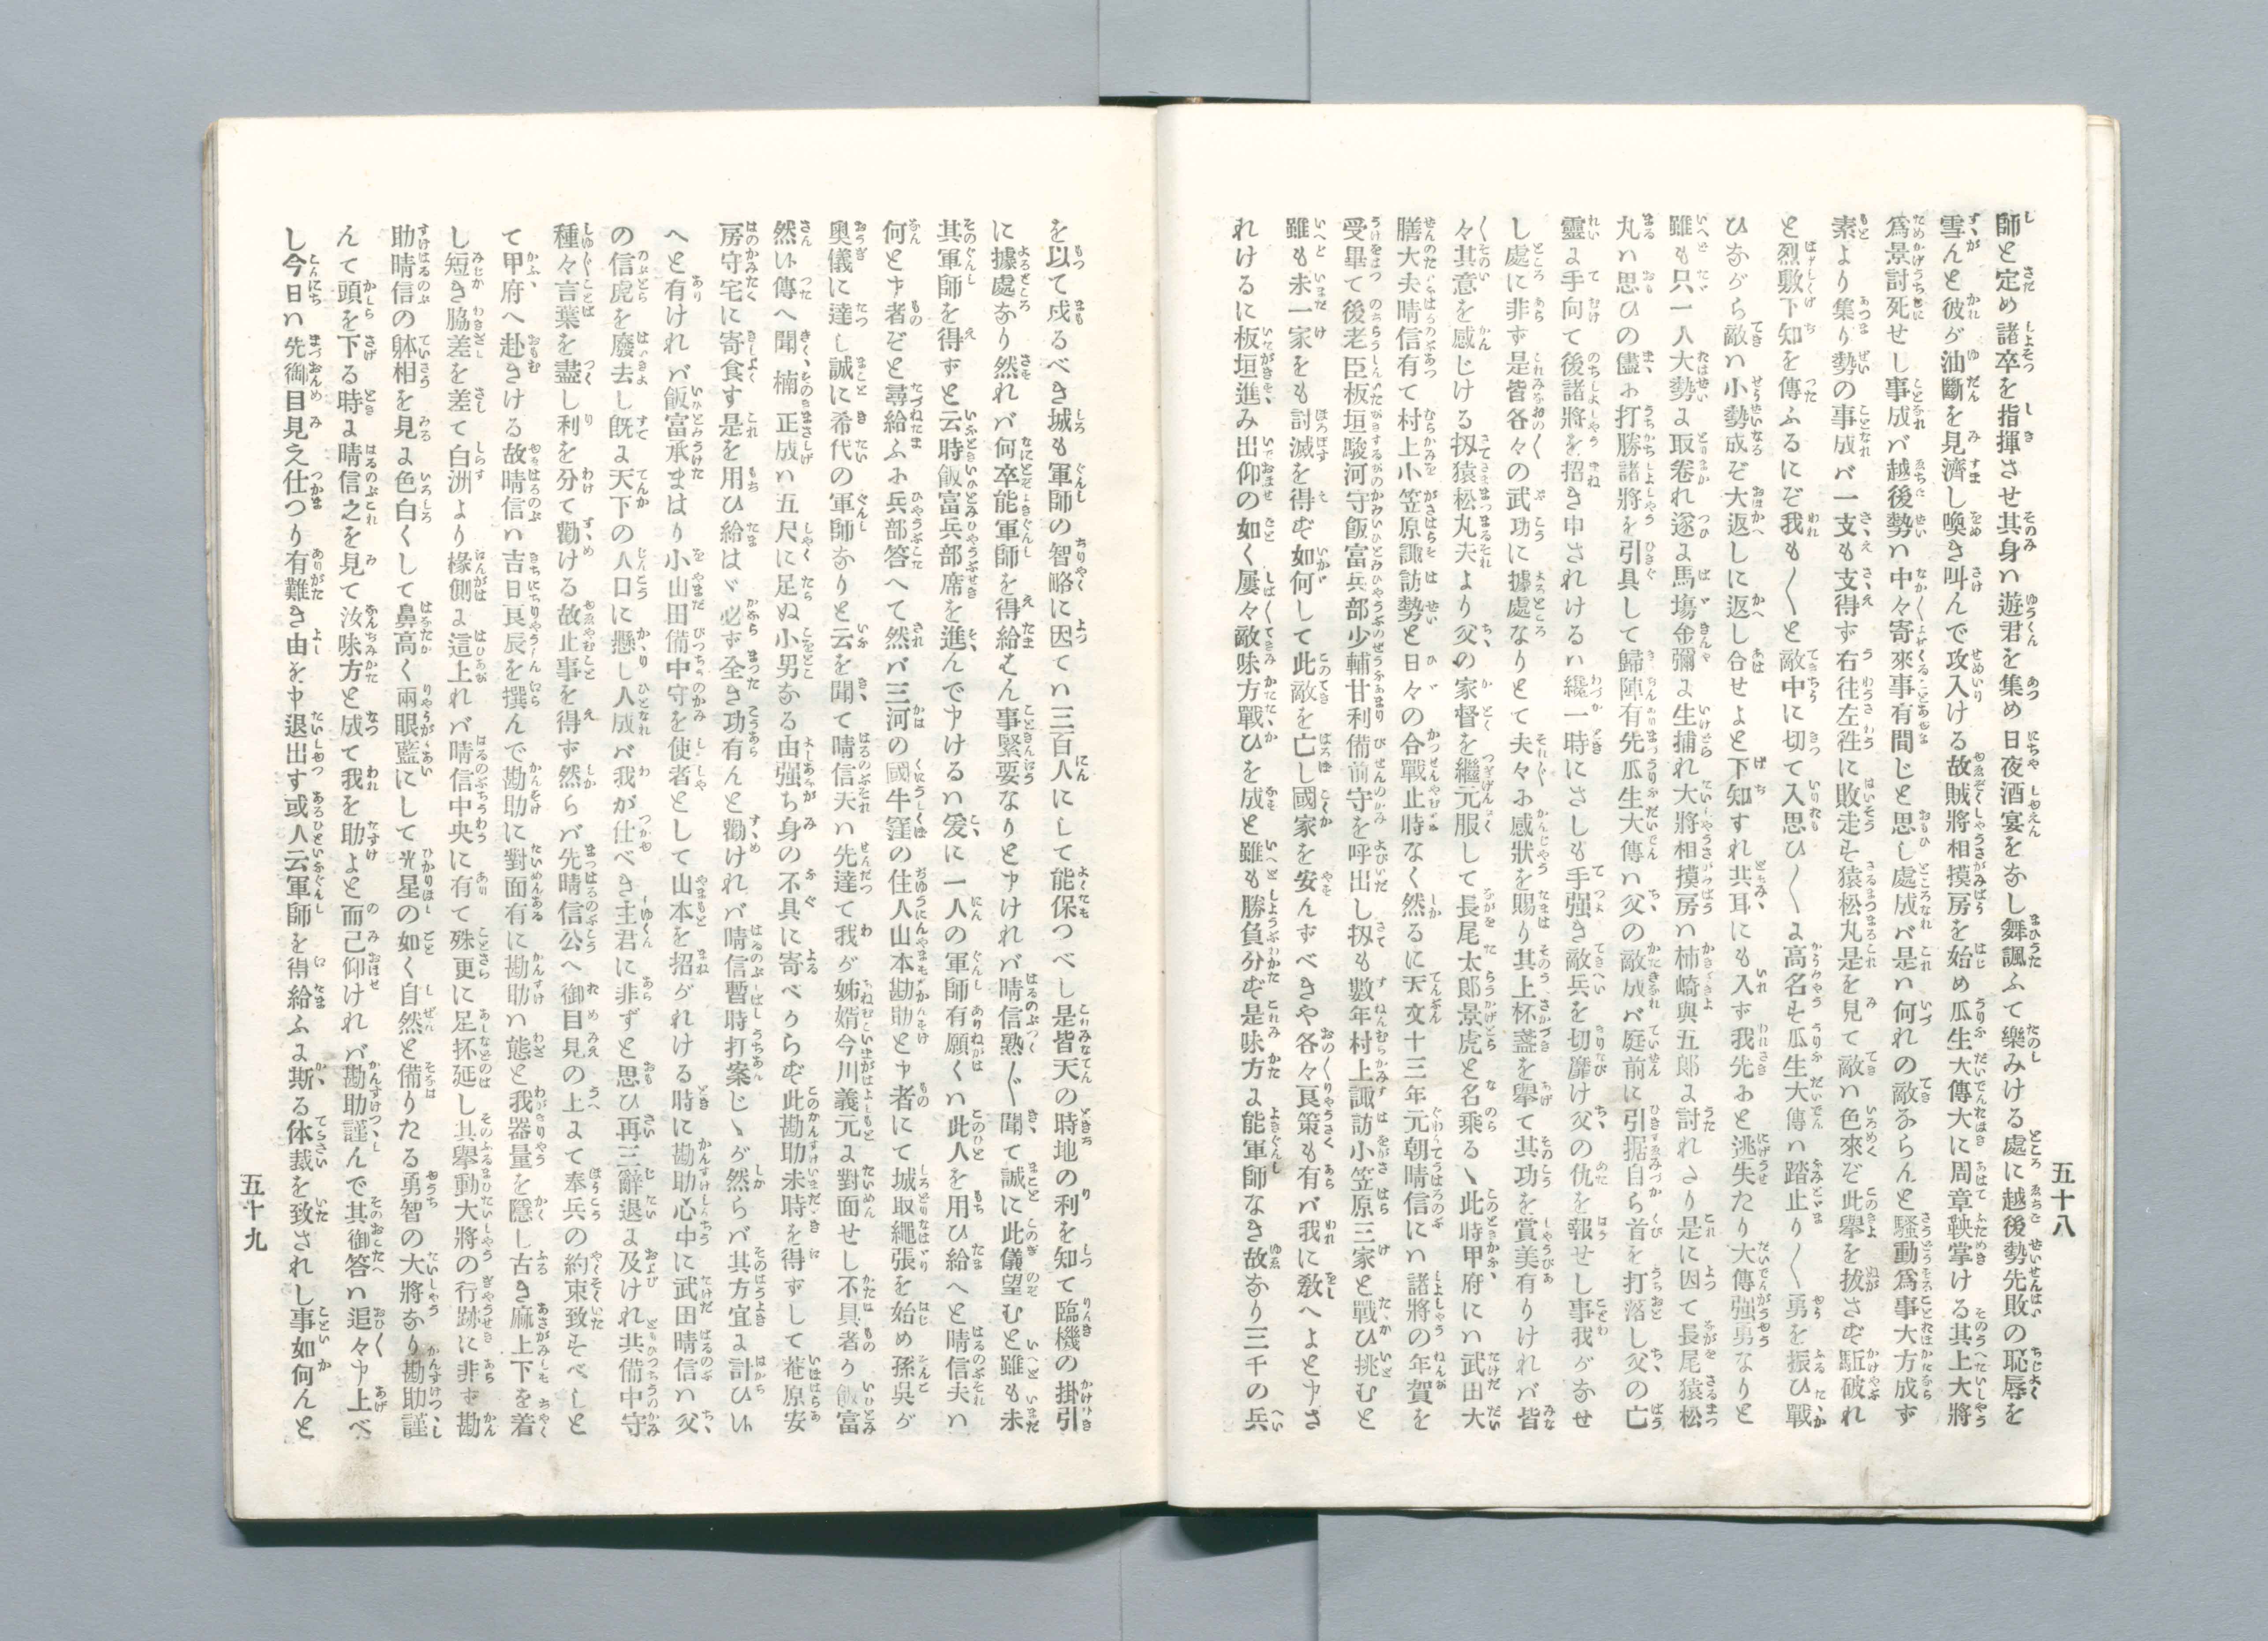 五十八
師と定め諸卒を指揮させ其身ハ遊君を集め日夜酒宴をなし舞諷ふて樂みける處に越後勢先敗の恥辱を
雪んと彼が油斷を見濟し喚き叫んで攻入ける故賊將相摸房を始め瓜生大傳大に周章鞅掌ける其上大將
爲景討死せし事成バ越後勢ハ中々寄來事有間じと思し處成バ是ハ何れの敵ならんと騷動爲事大方成ず
素より集り勢の事成バ一支も支得ず右往左徃に敗走す猿松丸是を見て敵ハ色來ぞ此擧を拔さず駈破れ
と烈敷下知を傳ふるにぞ我も〳〵と敵中に切て入思ひ〳〵に高名す瓜生大傳ハ踏止り〳〵勇を振ひ戰
ひながら敵ハ小勢成ぞ大返しに返し合せよと下知すれ共耳にも入ず我先にと逃失たり大傳强勇なりと
雖も只一人大勢に取卷れ遂に馬塲金彌に生捕れ大將相摸房ハ柿崎與五郎に討れたり是に因て長尾猿松
丸ハ思ひの儘に打勝諸將を引具して歸陣有先瓜生大傳ハ父の敵成バ庭前に引据自ら首を打落し父の亡
靈に手向て後諸將を招き申されけるハ纔一時にさしも手强き敵兵を切靡け父の仇を報せし事我がなせ
し處に非ず是皆各々の武功に據處なりとて夫々に感狀を賜り其上杯盞を擧て其功を賞美有りけれバ皆
々其意を感じける扨猿松丸夫より父の家督を繼元服して長尾太郎景虎と名乘る此時甲府にハ武田大
膳大夫晴信有て村上小笠原諏訪勢と日々の合戰止時なく然るに天文十三年元朝晴信にハ諸將の年賀を
受畢て後老臣板垣駿河守飯富兵部少輔甘利備前守を呼出し扨も數年村上諏訪小笠原三家と戰ひ挑むと
雖も未一家をも討滅を得ず如何して此敵を亡し國家を安んずべきや各々良策も有バ我に敎へよと申さ
れけるに板垣進み出仰の如く屢々敵味方戰ひを成と雖も勝負分ず是味方に能軍師なき故なり三千の兵
を以て戍るべき城も軍師の智略に因てハ三百人にして能保つべし是皆天の時地の利を知て臨機の掛引
に據處なり然れバ何卒能軍師を得給はん事緊要なりと申けれバ晴信熟〻聞て誠に此儀望むと雖も未
其軍師を得ずと云時飯富兵部席を進んで申けるハ爰に一人の軍師有願くハ此人を用ひ給へと晴信夫ハ
何と申者ぞと尋給ふに兵部答へて然バ三河の國牛窪の住人山本勘助と申者にて城取繩張を始め孫吳が
奧儀に達し誠に希代の軍師なりと云を聞て晴信夫ハ先達て我が姊婿今川義元に對面せし不具者か飯富
然ハ傳へ聞楠正成ハ五尺に足ぬ小男なる由强ち身の不具に寄べからず此勘助未時を得ずして菴原安
房守宅に寄食す是を用ひ給はゞ必ず全き功有んと勸けれバ晴信暫時打案じゝが然らバ其方宜に計ひい
へと有けれバ飯富承まはり小山田備中守を使者として山本を招がれける時に勘助心中に武田晴信ハ父
の信虎を廢去し旣に天下の人口に懸し人成バ我が仕べき主君に非ずと思ひ再三辭退に及けれ共備中守
種々言葉を盡し利を分て勸ける故止事を得ず然らバ先晴信公へ御目見の上にて奉兵の約束致すべしと
て甲府へ赴きける故晴信ハ吉日良辰を撰んで勘助に對面有に勘助ハ態と我器量を隱し古き麻上下を着
し短き脇差を差て白洲より椽側に這上れバ晴信中央に有て殊更に足抔延し其擧動大將の行跡に非ず勘
助晴信の躰相を見に色白くして鼻高く兩眼藍にして光星の如く自然と備りたる勇智の大將なり勘助謹
んて頭を下る時に晴信之を見て汝味方と成て我を助よと而己仰けれバ勘助謹んで其御答ハ追々申上べ
し今日ハ先御目見え仕つり有難き由を申退出す或人云軍師を得給ふに斯る体裁を致されし事如何んと
五十九